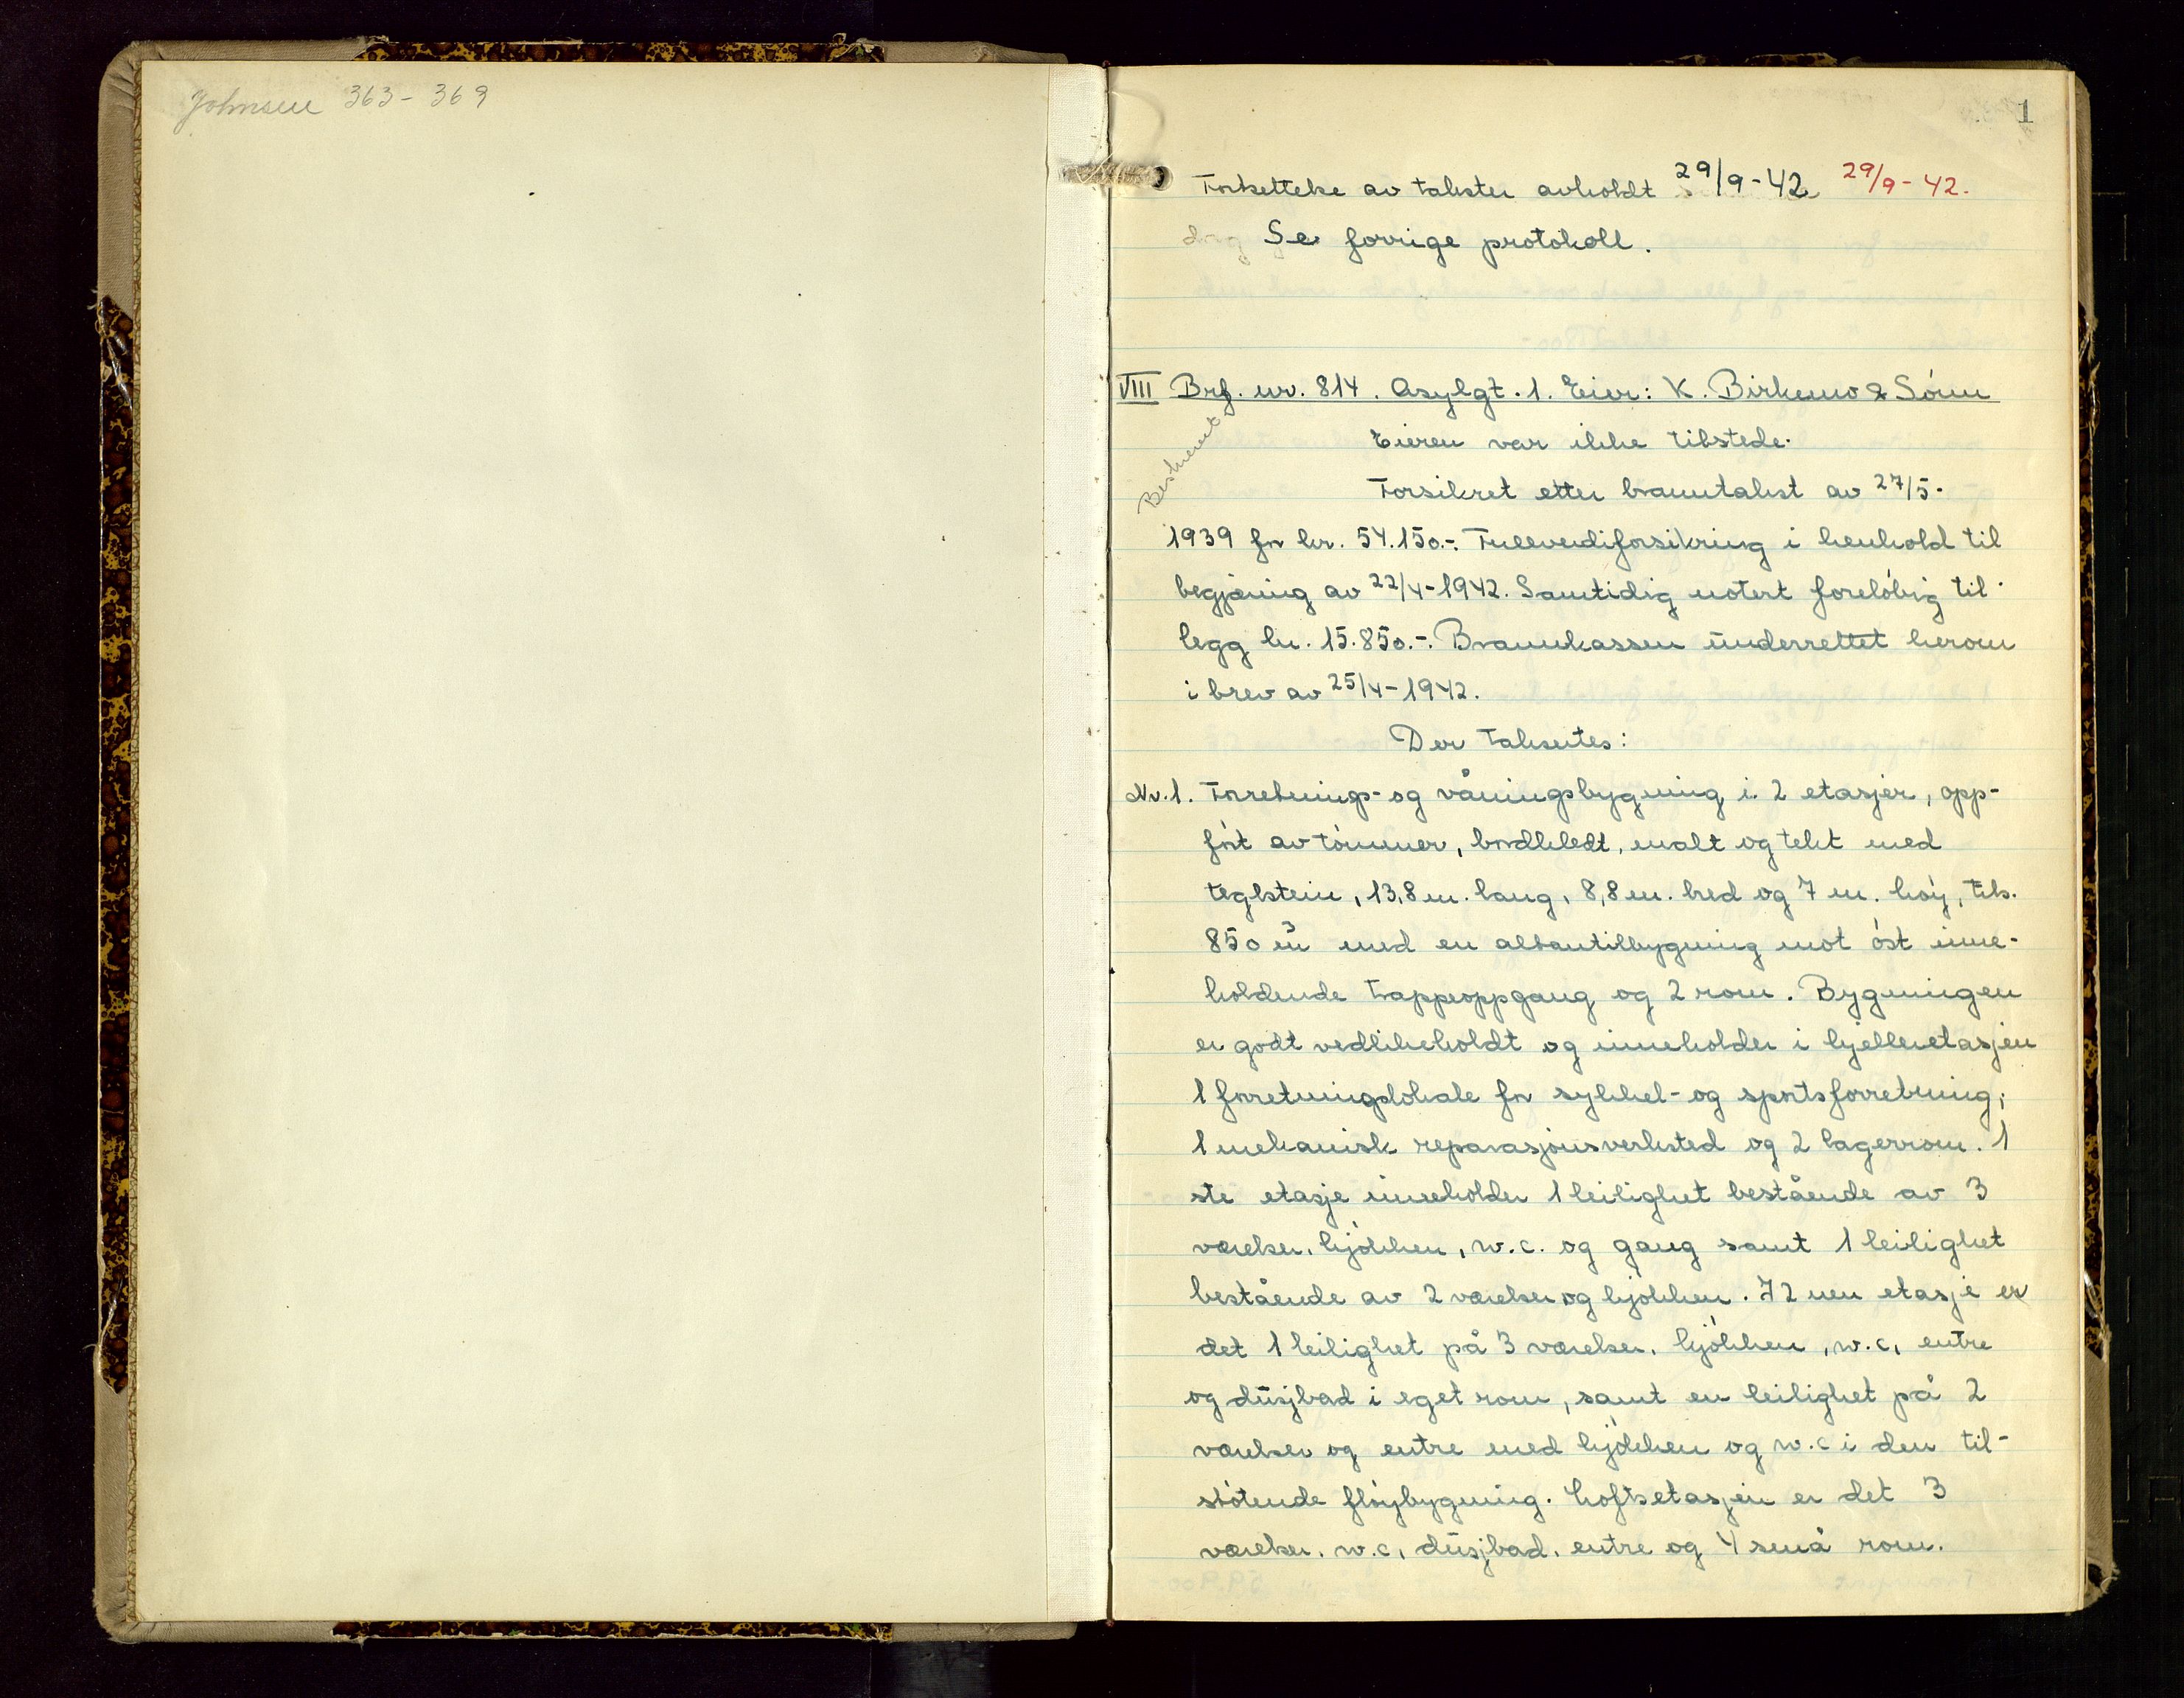 Johnsen 363-369
1
Fortsettelse av takster avholdt 29/9-42 29/9-42.
Se forrige protokoll.
VIII Brf. nr. 814. Asylgt. 1. Eier: K. Birkemo & Sønn
Eieren var ikke tilstede.
Bestemt
Forsikret etter branntakst av 27/5-
1939 for kr. 54.150.-. Fullverdiforsikring i henhold til
begjæring av 22/4-1942. Samtidig notert foreløbig til-
legg kr. 15.850.-. Brannkassen underrettet herom
i brev av 25/4-1942.
Der takseres:
Nr. 1. Forretnings- og våningsbygning i 2 etasjer, opp-
ført av tømmer, bordkledt, malt og tekt med
teglstein, 13,8 m. lang, 8,8 m. bred og 7 m. høy, tils.
850 m³ med en altantilbygning mot øst inne-
holdende trappeoppgang og 2 rom. Bygningen
er godt vedlikeholdt og inneholder i kjelleretasjen
1 forretningslokale for sykkel- og sportsforretning;
1 mekanisk reparasjonsverksted og 2 lagerrom. 1
ste etasje inneholder 1 leilighet bestående av 3
værelser, kjøkken, w.c. og gang samt 1 leilighet
bestående av 2 værelser og kjøkken. I 2 nen etasje er
det 1 leilighet på 3 værelser, kjøkken, w.c, entre
og dusjbad i eget rom, samt en leilighet på 2
værelser og entre med kjøkken og w.c i den til-
støtende fløybygning. Loftsetasjen er det 3
værelser, w.c, dusjbad, entre og 4 små rom.